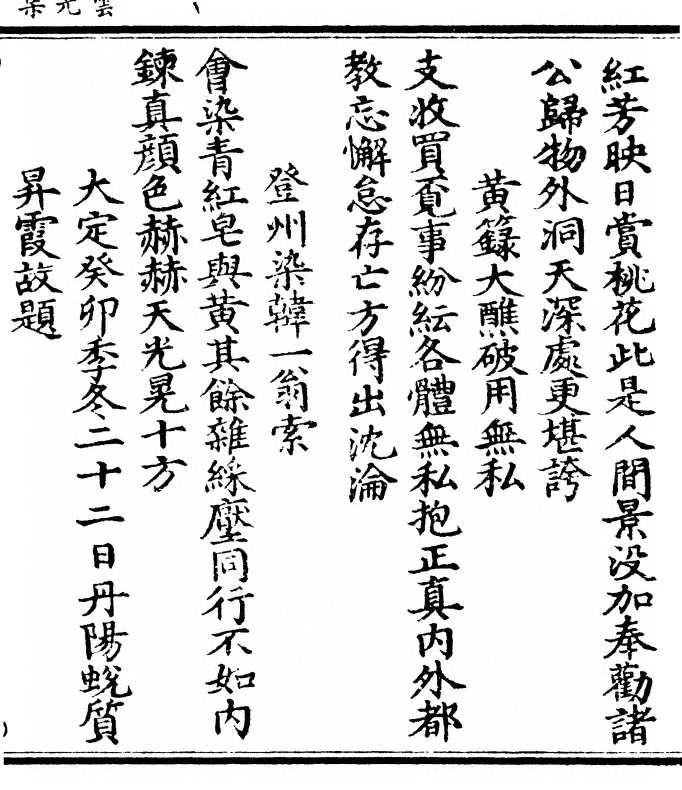 紅芳映日賞桃花此是人間景没加奉勸諸
公歸物外洞天深處更堪誇
黄籙大醮破用無私
支收買覔事紛紜各體無私抱正真内外都
教忘懈怠存亡方得出沈淪
登州染韓一翁索
會染青紅皂與黄其餘雜綵壓同行不如内
鍊真顔色赫赫天光晃十方
大定癸卯季冬二十二日丹陽蛻質
昇霞故題